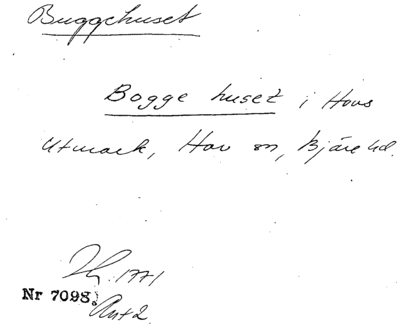 Buggehuset
Bogge huset i Hovs
utmark, Hov sn, Bjäre hd.
1771
Nr 7098.
Ant 2